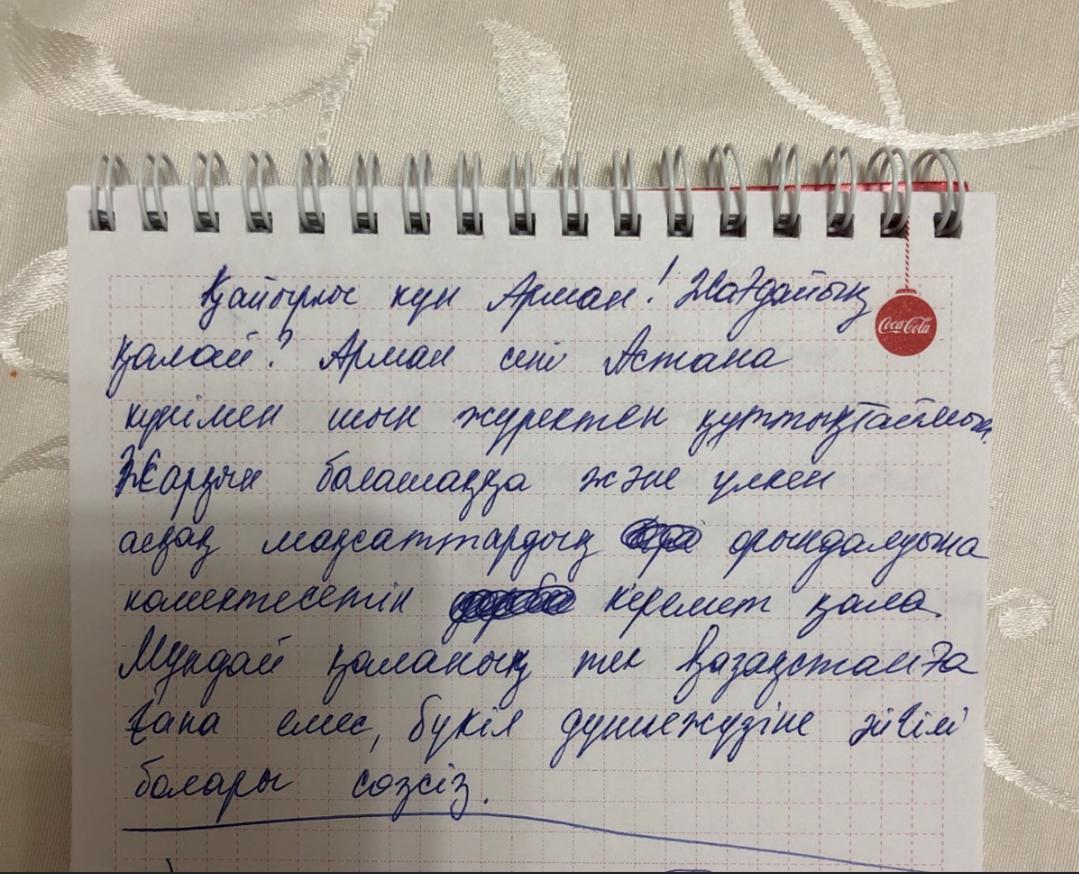 Қайырлы күн Арман! Жағдайың
қалай? Арман сені Астана
күнімен шын жүректен құттықтаймын.
Жарқын болашаққа және үлкен
асқақ мақсаттардың орындалуына
көмектесетін керемет қала.
Мұндай қаланың тек Қазақстанға
ғана емес, бүкіл дүниежүзіне әйгілі
болары сөзсіз.
Coca-Cola